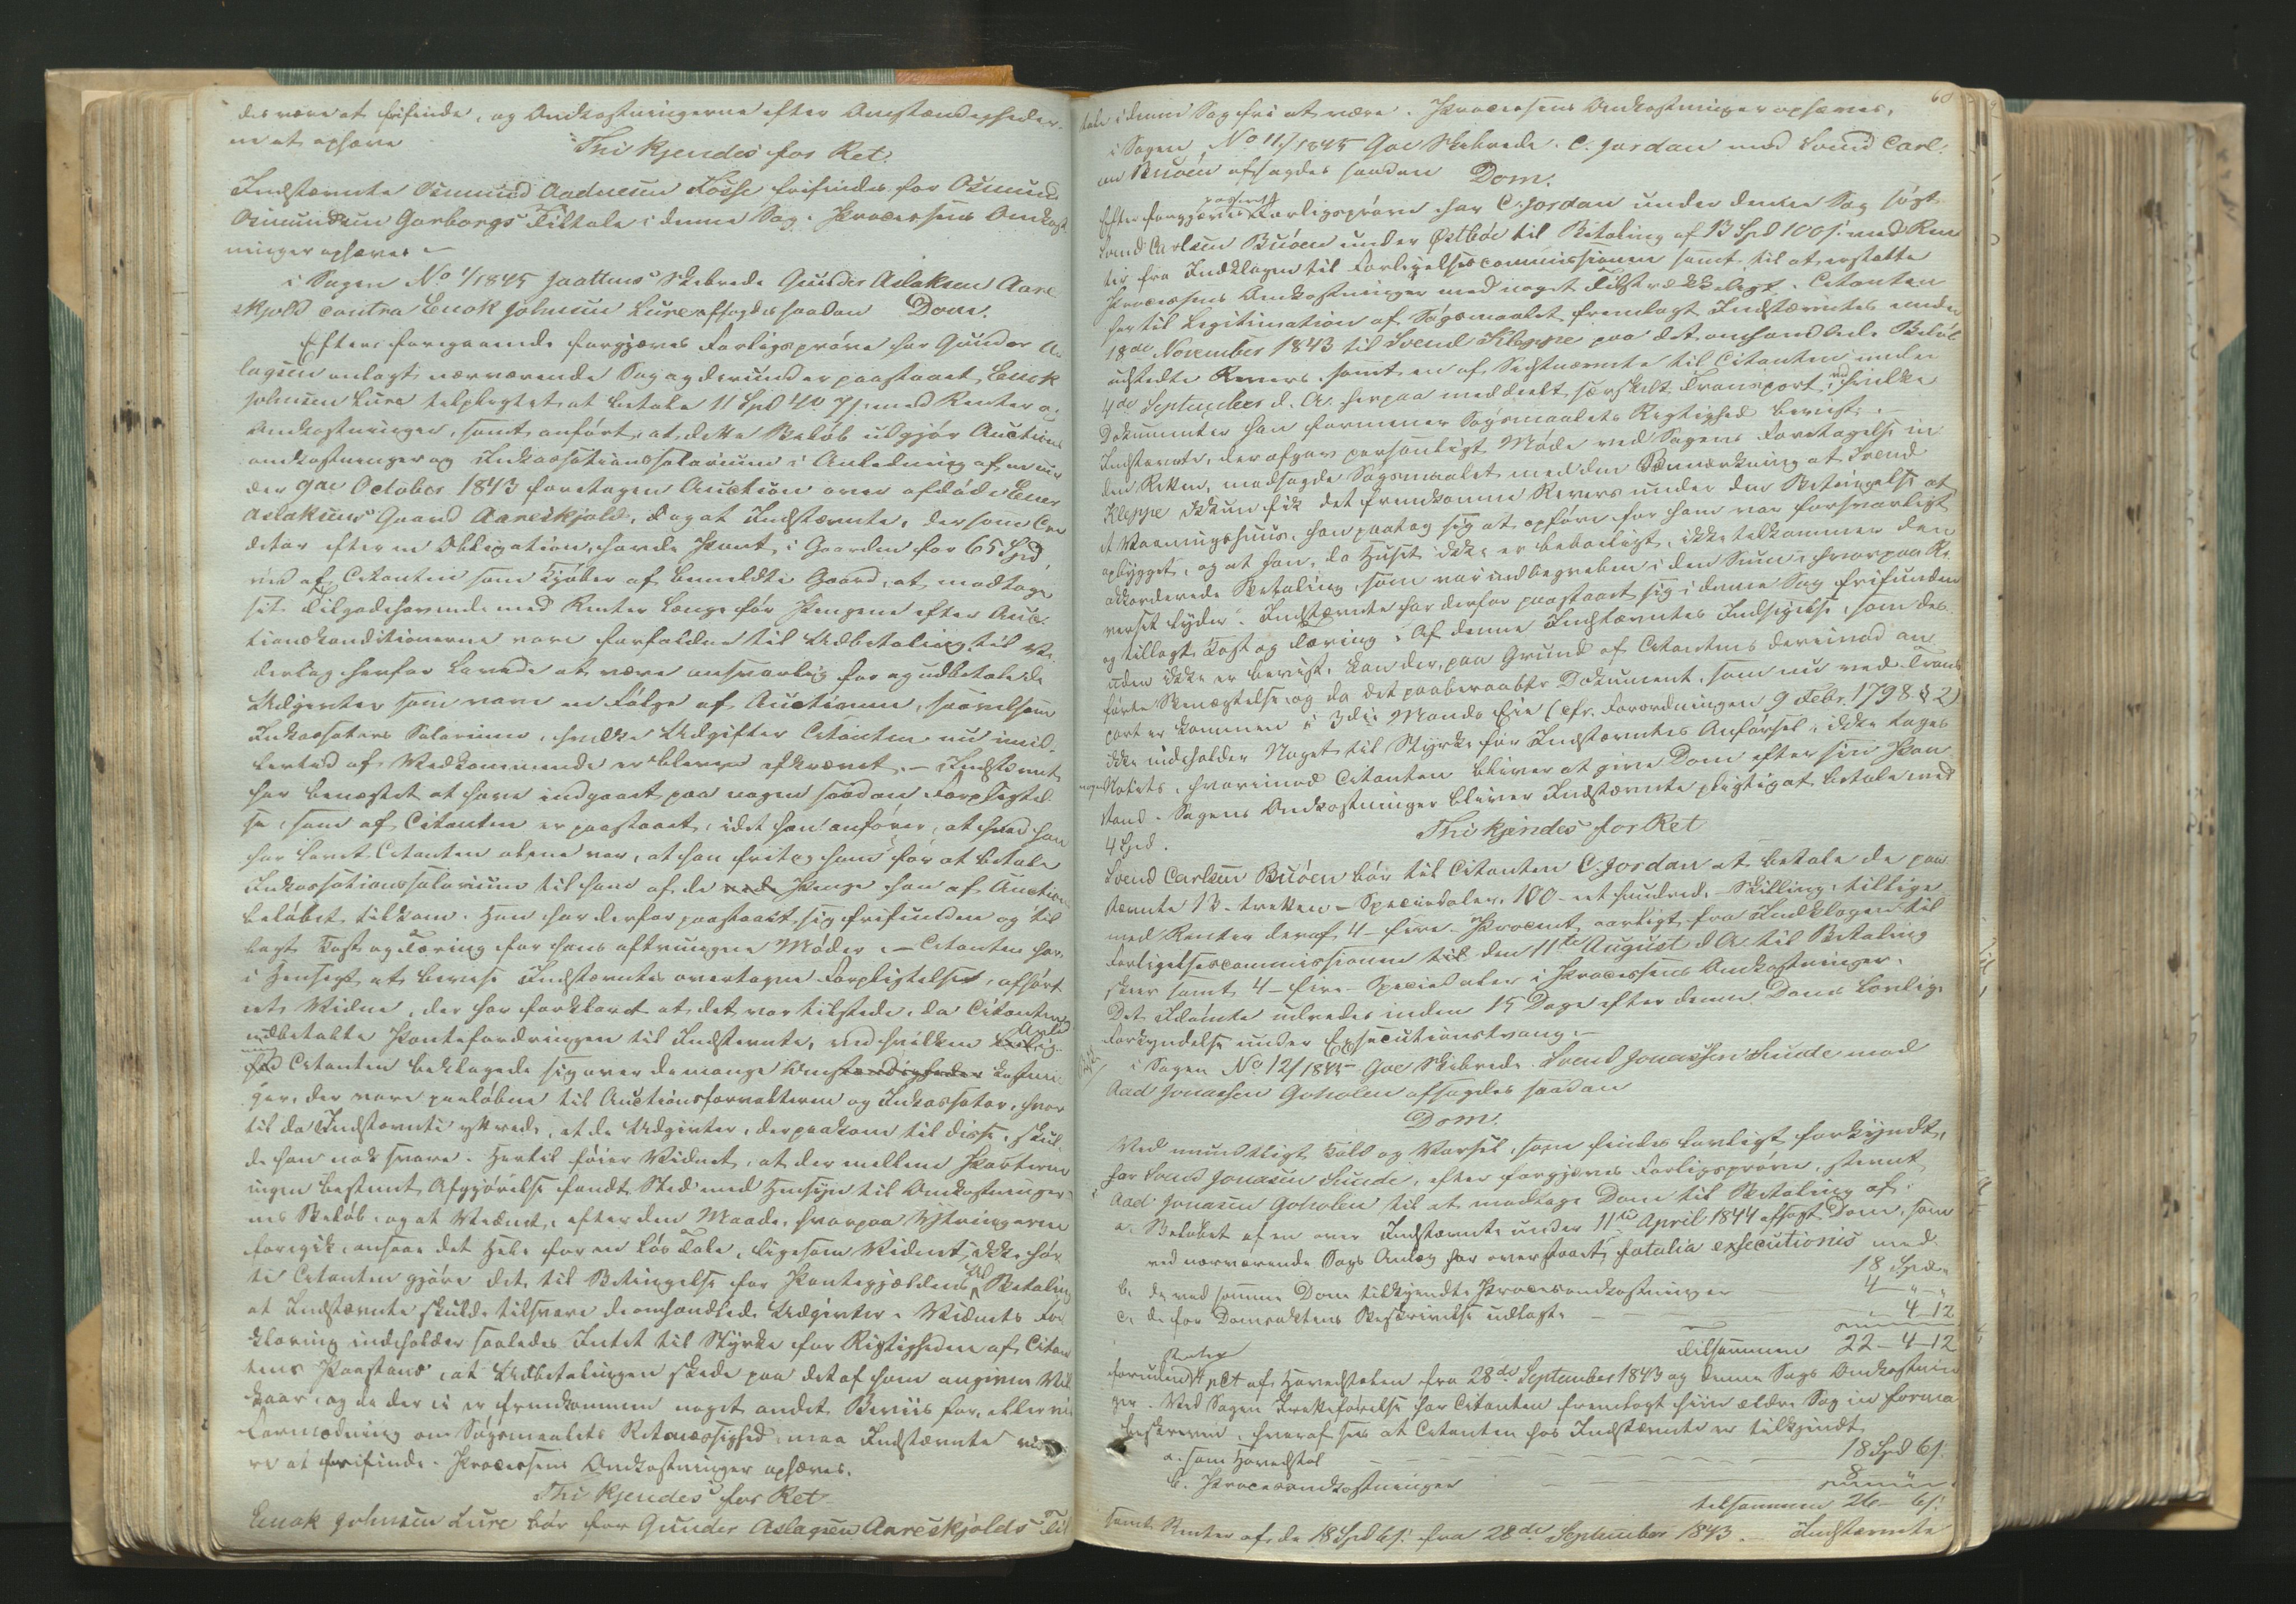 des være at frifinde, og Omkostningerne efter Omstændigheder-
ne at ophæve
Thi kjendes for Ret:
Indstævnte Osmund Aadnesen Fosse frifindes for Osmund
Osmundsen Garborgs Tiltale i denne Sag. Processens Omkost-
ninger ophæves.
i Sagen No 1/1845 Jaattens Skibrede Gunder Aslaksen Aare-
skjold contra Enok Johnsen Lure afsagdes saadan Dom.
Efter foregaaende forgjæves Forligsprøve har Gunder As-
lagsen anlagt nærværende Sag og derunder paastaaet Enok
Johnsen Lure tilpligtet at betale 11 Spd 4 7 s. med Renter og
Omkostninger, samt anført, at dette Beløb udgjør Auctions
omkostninger og Inkassationssalarium i Anledning af en un-
der 9de October 1843 foretagen Auction over afdøde
Aslaksens Gaard Aareskjold, og at Indstævnte, der som Cre-
ditor efter en Obligation, havde Pant i Gaarden for 65 Spd,
ved af Citanten som Kjøber af bemeldte Gaard, at modtage
sit Tilgodehavende med Renter længe før Pengene efter Auc-
tionskonditionerne vare forfaldne til Udbetaling, til Ve-
derlag herfor lovede at være ansvarlig for og udbetale de
Udgivter som vare en Følge af Auctionen, saavelsom
Inkassators Salarium, hvilke Udgifter Citanten nu imid-
lertid af Vedkommende er bleven afkrævet. – Indstævnte
har benægtet at have indgaaet paa nogen saadan Forpligtel-
se, som af Citanten er paastaaet, idet han anfører, at hvad han
har lovet Citanten alene var, at han fritog ham for at betale
Inkassationssalarium til ham af de Penge han af Auctions-
beløbet tilkom. Han har derfor paastaaet sig frifunden og til-
lagt Kost og Tæring for hans aftvungne Møder. – Citanten har,
i Hensigt at bevise Indstævntes overtagne Forpligtelse, afhørt
et Vidne, der har forklaret at det var tilstede, da Citanten
udbetalte Pantefordringen til Indstævnte, ved hvilken Anled-
ning Citanten beklagede sig over de mange Omkostnin-
ger, der vare paaløbne til Auctionsforvalteren og Inkassator, hvor-
til da Indstævnte yttrede, at de Udgivter, der paakom til disse, skul-
de han nok svare. Hertil føier Vidnet, at der mellem Parterne
ingen bestemt Afgjørelse fandt Sted med Hensyn til Omkostninger-
nes Beløb, og at Vidnet, efter den Maade, hvorpaa Yttringerne
foregik, ansaae det Hele for en løs Tale, ligesom Vidnet ikke hør-
te Citanten gjøre det til Betingelse for Pantegjældens Udbetaling
at Indstævnte skulde tilsvare de omhandlede Udgivter. Vidnets For-
klaring indeholder saaledes Intet til Styrke for Rigtigheden af Citan-
tens Paastand, at Udbetalingen skede paa det af ham angivne Vil-
kaar, og da der ei er fremkommen noget andet Beviis for, eller
Formodning om Søgsmaalets Retmæssighed, maa Indstævnte væ-
re at frifinde. Processens Omkostninger ophæves.
Thi kjendes for Ret
Enok Johnsen Lure bør for Gunder Aslagsen Aareskjolds Til-
60
tale i denne Sag fri at være. Processens Omkostninger ophæves.
i Sagen No 11/1845 Goe Skibrede. C. Jordan mod Svend Carl-
sen Buøen afsagdes saadan Dom.
Efter forgjæves passeret Forligsprøve har C. Jordan under denne Sag søgt
Svend Carlsen Buøen under Østbøe til Betaling af 13 Spd 100 s. med Ren-
ter fra Indklagen til Forligelsescommissionen samt til at erstatte
Processens Omkostninger med noget Tilstrækkeligt. Citanten
har til Legitimation af Søgsmaalet fremlagt Indstævntes under
18de November 1843 til Svend Kleppe paa det omhandlede Beløb
udstedte Revers samt en af Sidstnævnte til Citanten under
4de September d. A. herpaa meddeelt særskilt Transport, ved hvilke
Dokumenter han formener Søgsmaalets Rigtighed beviist. –
Indstævnte, der afgav personligt Møde ved Sagens Foretagelse in-
den Retten, modsagde Søgsmaalet med den Bemærkning at Svend
Kleppe ikkun fik det fremkomne Revers under den Betingelse at
et Vaaningshuus, han paatog sig at opføre for ham var forsvarligt
opbygget, og at han, da Huset ikke er beboeligt, ikke tilkommer den
akkorderede Betaling, som var indbegreben i den Sum, hvorpaa Re-
verset lyder. Indstævnte har derfor paastaaet sig i denne Sag frifunden
og tillagt Kost og Tæring. Af denne Indstævntes Indsigelse, som des-
uden ikke er beviist, kan der, paa Grund af Citantens derimod an-
førte Benægtelse og da det paaberaabte Dokument, som nu ved Trans-
port er kommen i 3die Mands Eie (cfr. Forordningen 9 Febr. 1798 § 2)
ikke indeholder Noget til Styrke for Indstævntes Anførsel, ikke tages
nogen Notits, hvorimod Citanten bliver at give Dom efter sin Paa-
stand. Sagens Omkostninger bliver Indstævnte pligtig at betale med
4 Spd.
Thi kjendes for Ret
Svend Carlsen Buøen bør til Citanten C. Jordan at betale de paa-
stævnte 13 – tretten – Speciedaler, 100 – et hundrede – Skilling, tillige
med Renter deraf 4 – fire – Procent aarligt fra Indklagen til
Forligelsescommissionen den 11te August d. A. til Betaling
skeer samt 4 – fire – Speciedaler i Processens Omkostninger.
Det Idømte udredes inden 15 Dage efter denne Doms lovlige
Forkyndelse under Exsecutionstvang. –
i Sagen No 12/1845 Goe Skibrede. Svend Jonassen Sunde mod
Aad Jonassen Goholen afsagdes saadan
Dom.
Ved mundtligt Kald og Varsel, som findes lovligt forkyndt,
har Svend Jonasen Sunde, efter forgjæves Forligsprøve, stevnt
Aad Jonasen Goholen til at modtage Dom til Betaling af:
a. Beløbet af en over Indstævnte under 11te April 1844 afsagt Dom, som
ved nærværende Sags Anlæg har overstaaet fatalia exsecutionis med
18 Spd "
b. de ved samme Dom tilkjendte Procesomkostninger 4 – " – "
c. de for Domsaktens Beskrivelse udlagte – 4 – 12
Tilsammen 22 – 4 – 12
foruden Renter 4 pCt af Hovedstolen fra 28de September 1843 og denne Sags Omkostnin-
ger. Ved Sagens Fremførelse har Citanten fremlagt hiin ældre Sag in forma
beskreven, hvoraf sees at Citanten hos Indstævnte er tilkjendt
a. som Hovedstol – 18 Spd 6 s.
b. Procesomkostninger – 8
tilsammen 26 – 6 s.
samt Renter af de 18 Spd 6 s. fra 28de September 1843. – Indstævnte